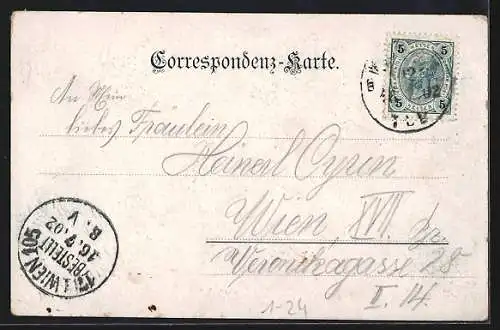 Correspondenz-Karte.
5 5
5 HELLER 5
An Mein
liebes Fräulein
Wien, XVII
Veronikagasse 28
II. 14.
17/1 WIEN 105
BESTELLT
16.7.02
8.V
1-24